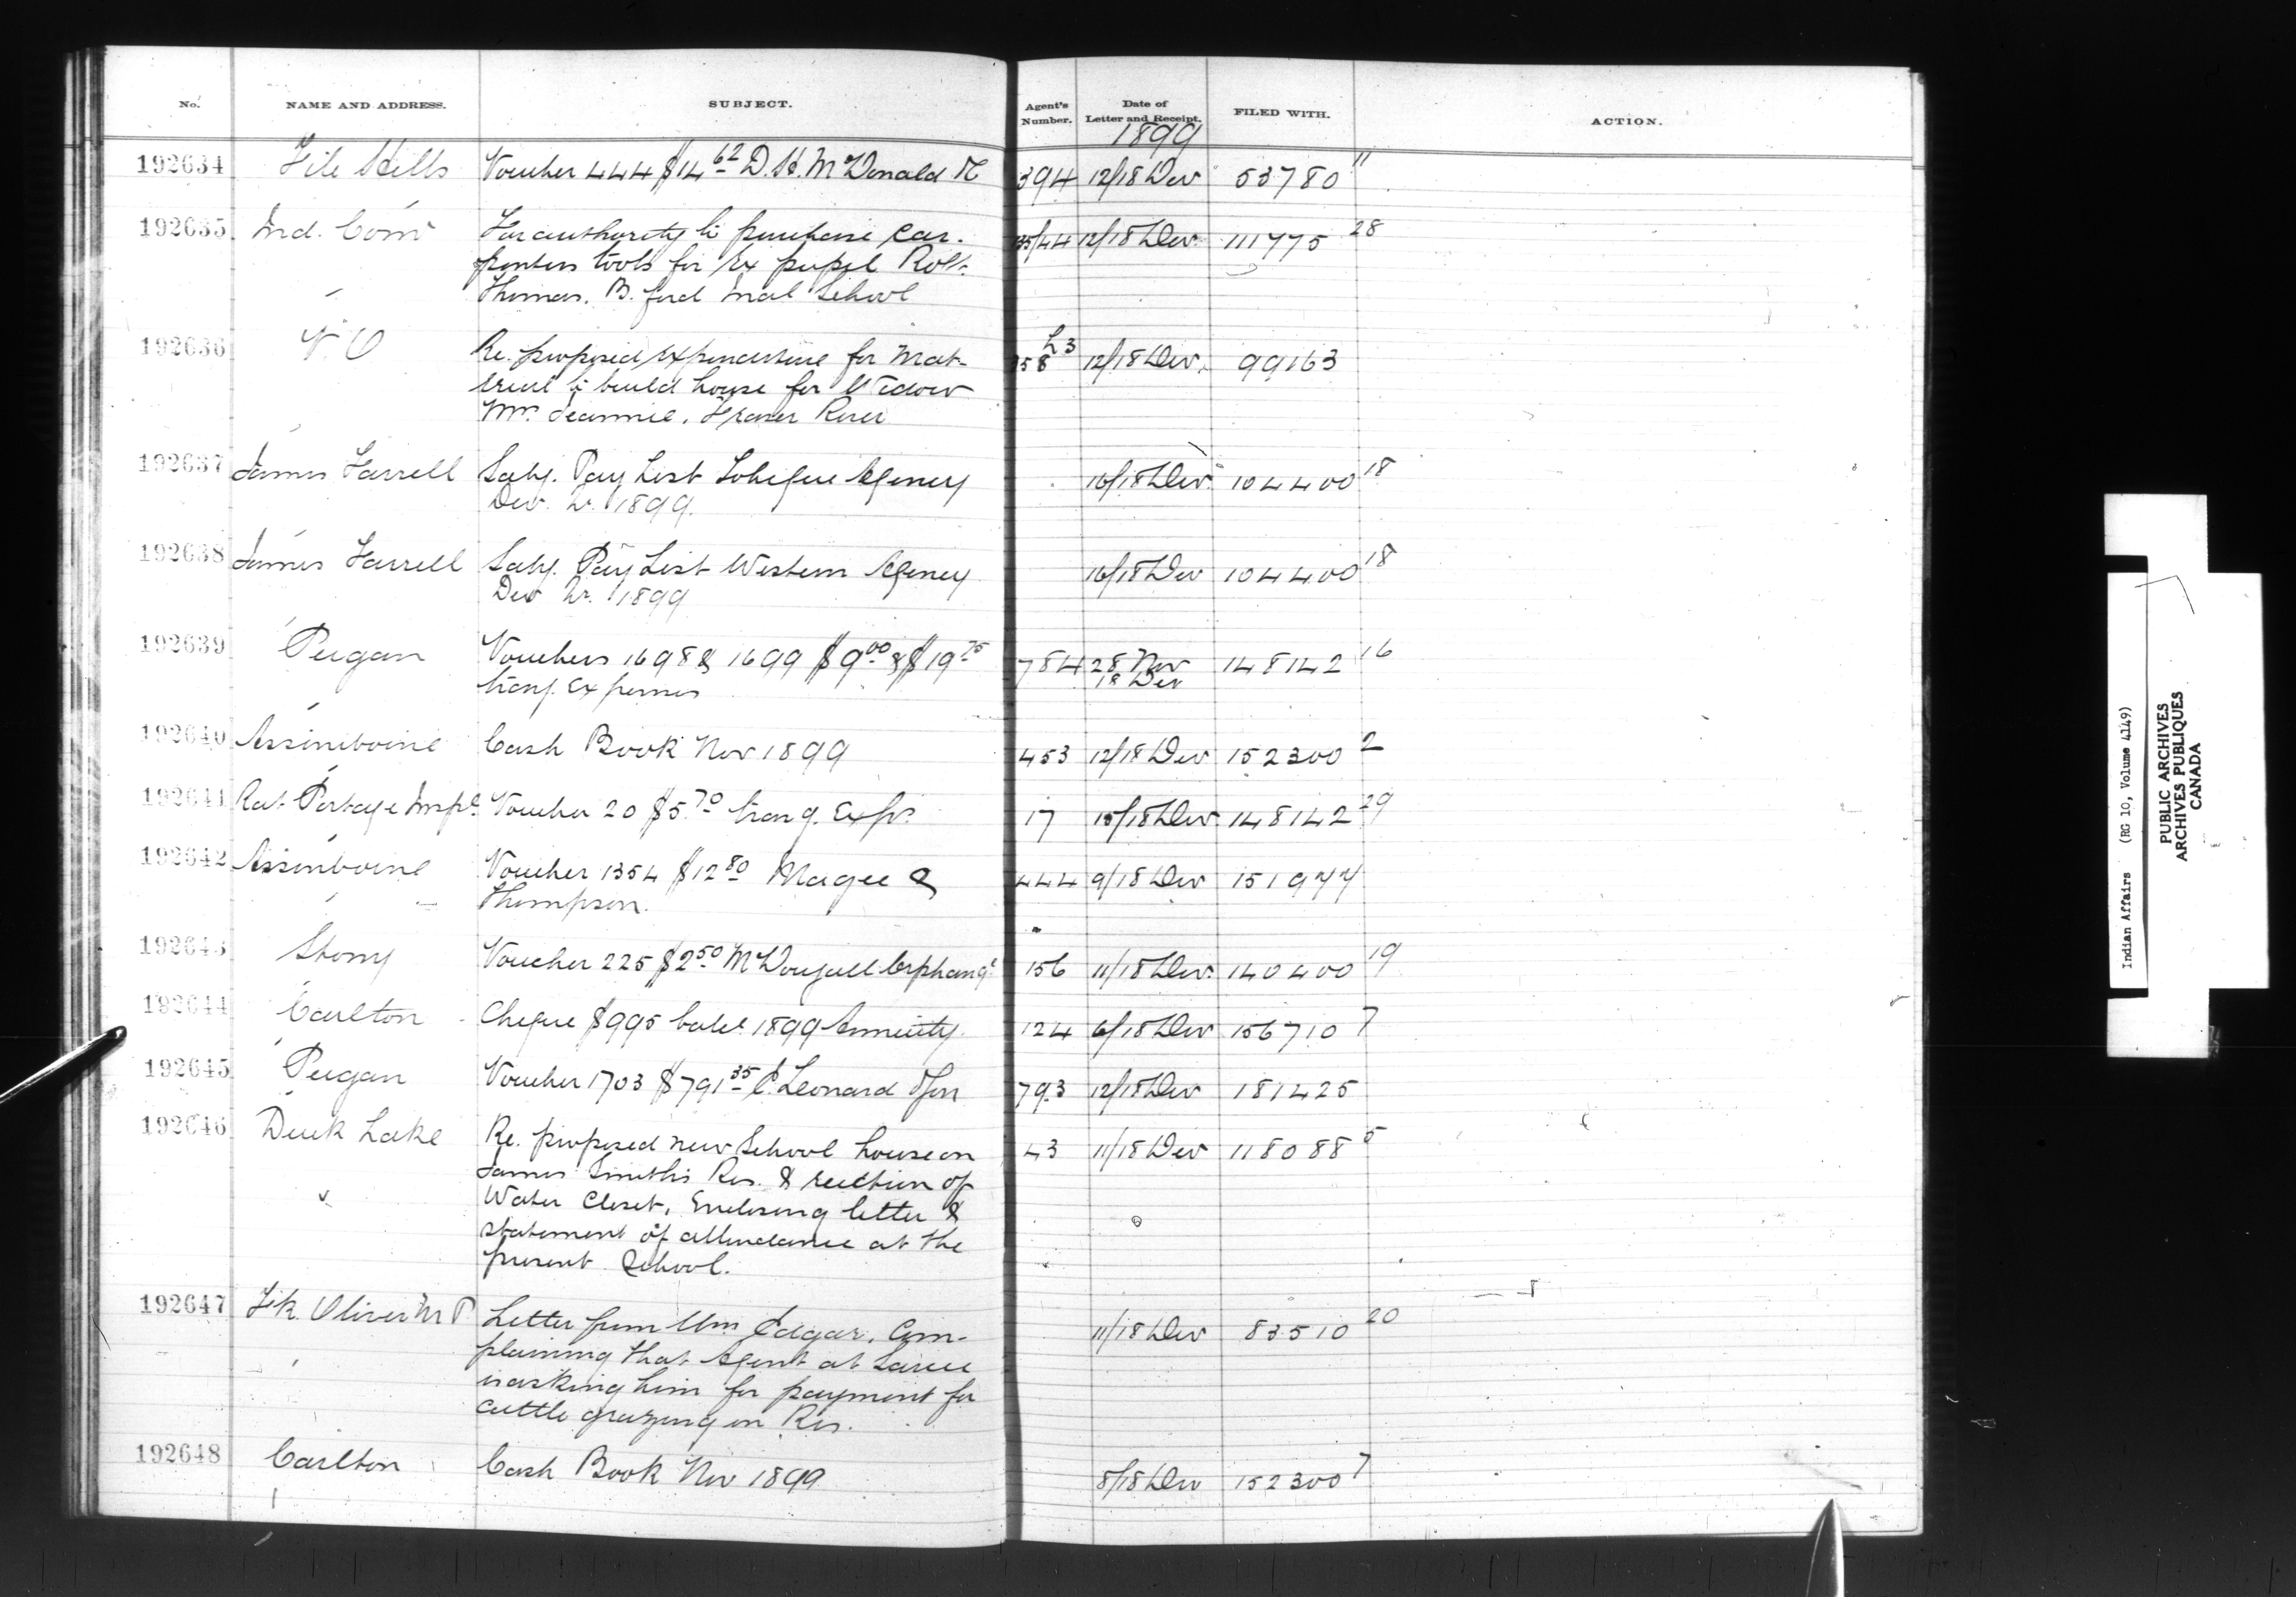 No. NAME AND ADDRESS. SUBJECT. Agent's Number. Date of Letter and Receipt. FILED WITH. ACTION.
1899
192634 File Hills Voucher 444 $14.62 D. H. McDonald 394 12/18 Dec 53780 11
192635 Ind. Com For authority to purchase car- 35/44 12/18 Dec 111775 28
penters tools for Ex pupil Robt.
Thomas, B. ford Indl School
192636 V. O Re. proposed expenditure for mat- 358 L3 12/18 Dec. 99163
erial to build house for Widow
Mrs. Jeannie, Fraser River
192637 James Farrell Saby. Pay List Lobique Agency 16/18 Dec. 104400 18
Dec. Qr. 1899.
192638 James Farrell Saby. Pay List Western Agency 16/18 Dec 104400 18
Dec Qr. 1899
192639 Peigan Vouchers 1698 & 1699 $9.00 & $19.75 784 28 Nov 148142 16
trang. Expenses 18 Dec
192640 Assiniboine Cash Book Nov 1899 453 12/18 Dec 152300 2
192641 Rat Portage Insp. Voucher 20 $5.70 trang. Exps. 17 15/18 Dec 148142 29
192642 Assiniboine Voucher 1354 $12.80 Magee & 444 9/18 Dec 151977
Thompson.
192643 Stony Voucher 225 $2.50 McDougall Orphange 156 11/18 Dec. 140400 19
192644 Carlton Cheque $995 balce. 1899 Annuity. 124 6/18 Dec 156710 7
192645 Peigan Voucher 1703 $791.35 E. Leonard & Son 793 12/18 Dec 181425
192646 Duck Lake Re. proposed new School house on 43 11/18 Dec 118088 5
James Smith's Res. & erection of
Water Closet, Enclosing letter &
statement of attendance at the
present School.
192647 Fk. Oliver M P Letter from Wm Edgar, Com- 11/18 Dec 83510 20
plaining that Agent at Sarcee
is asking him for payment for
cattle grazing on Res.
192648 Carlton Cash Book Nov 1899 8/18 Dec 152300 7
Indian Affairs (RG 10, Volume 4149)
PUBLIC ARCHIVES
ARCHIVES PUBLIQUES
CANADA